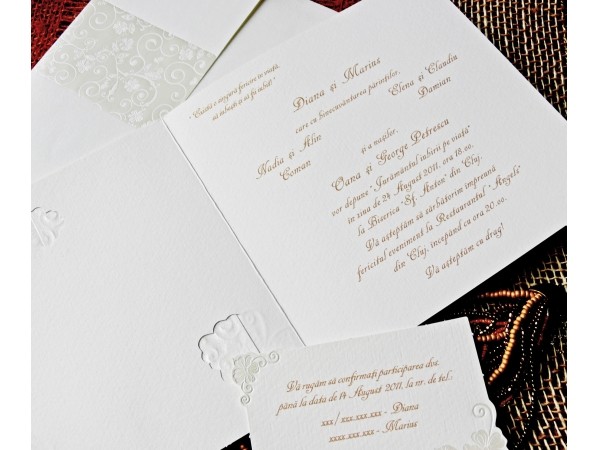 "Există o singură fericire în viață,
să iubești și să fii iubit."
Diana și Marius
care cu binecuvântarea parinților,
Elena și Claudiu
Damian
Nadia și Alin
Coman
și a nașilor,
Oana și George Petrescu
vor depune "Jurământul iubirii pe viață"
în ziua de 24 August 2011, ora 18.00,
la Biserica "Sf. Anton" din Cluj.
Vă așteptăm să sărbătorim împreună
fericitul eveniment la Restaurantul "Angels"
din Cluj, începând cu ora 20.00.
Vă așteptăm cu drag!
Vă rugăm să confirmați participarea dvs.
până la data de 14 August 2011, la nr. de tel.
xxx/ xxx.xxx.xxx - Diana
xxxx.xxx.xxx - Marius